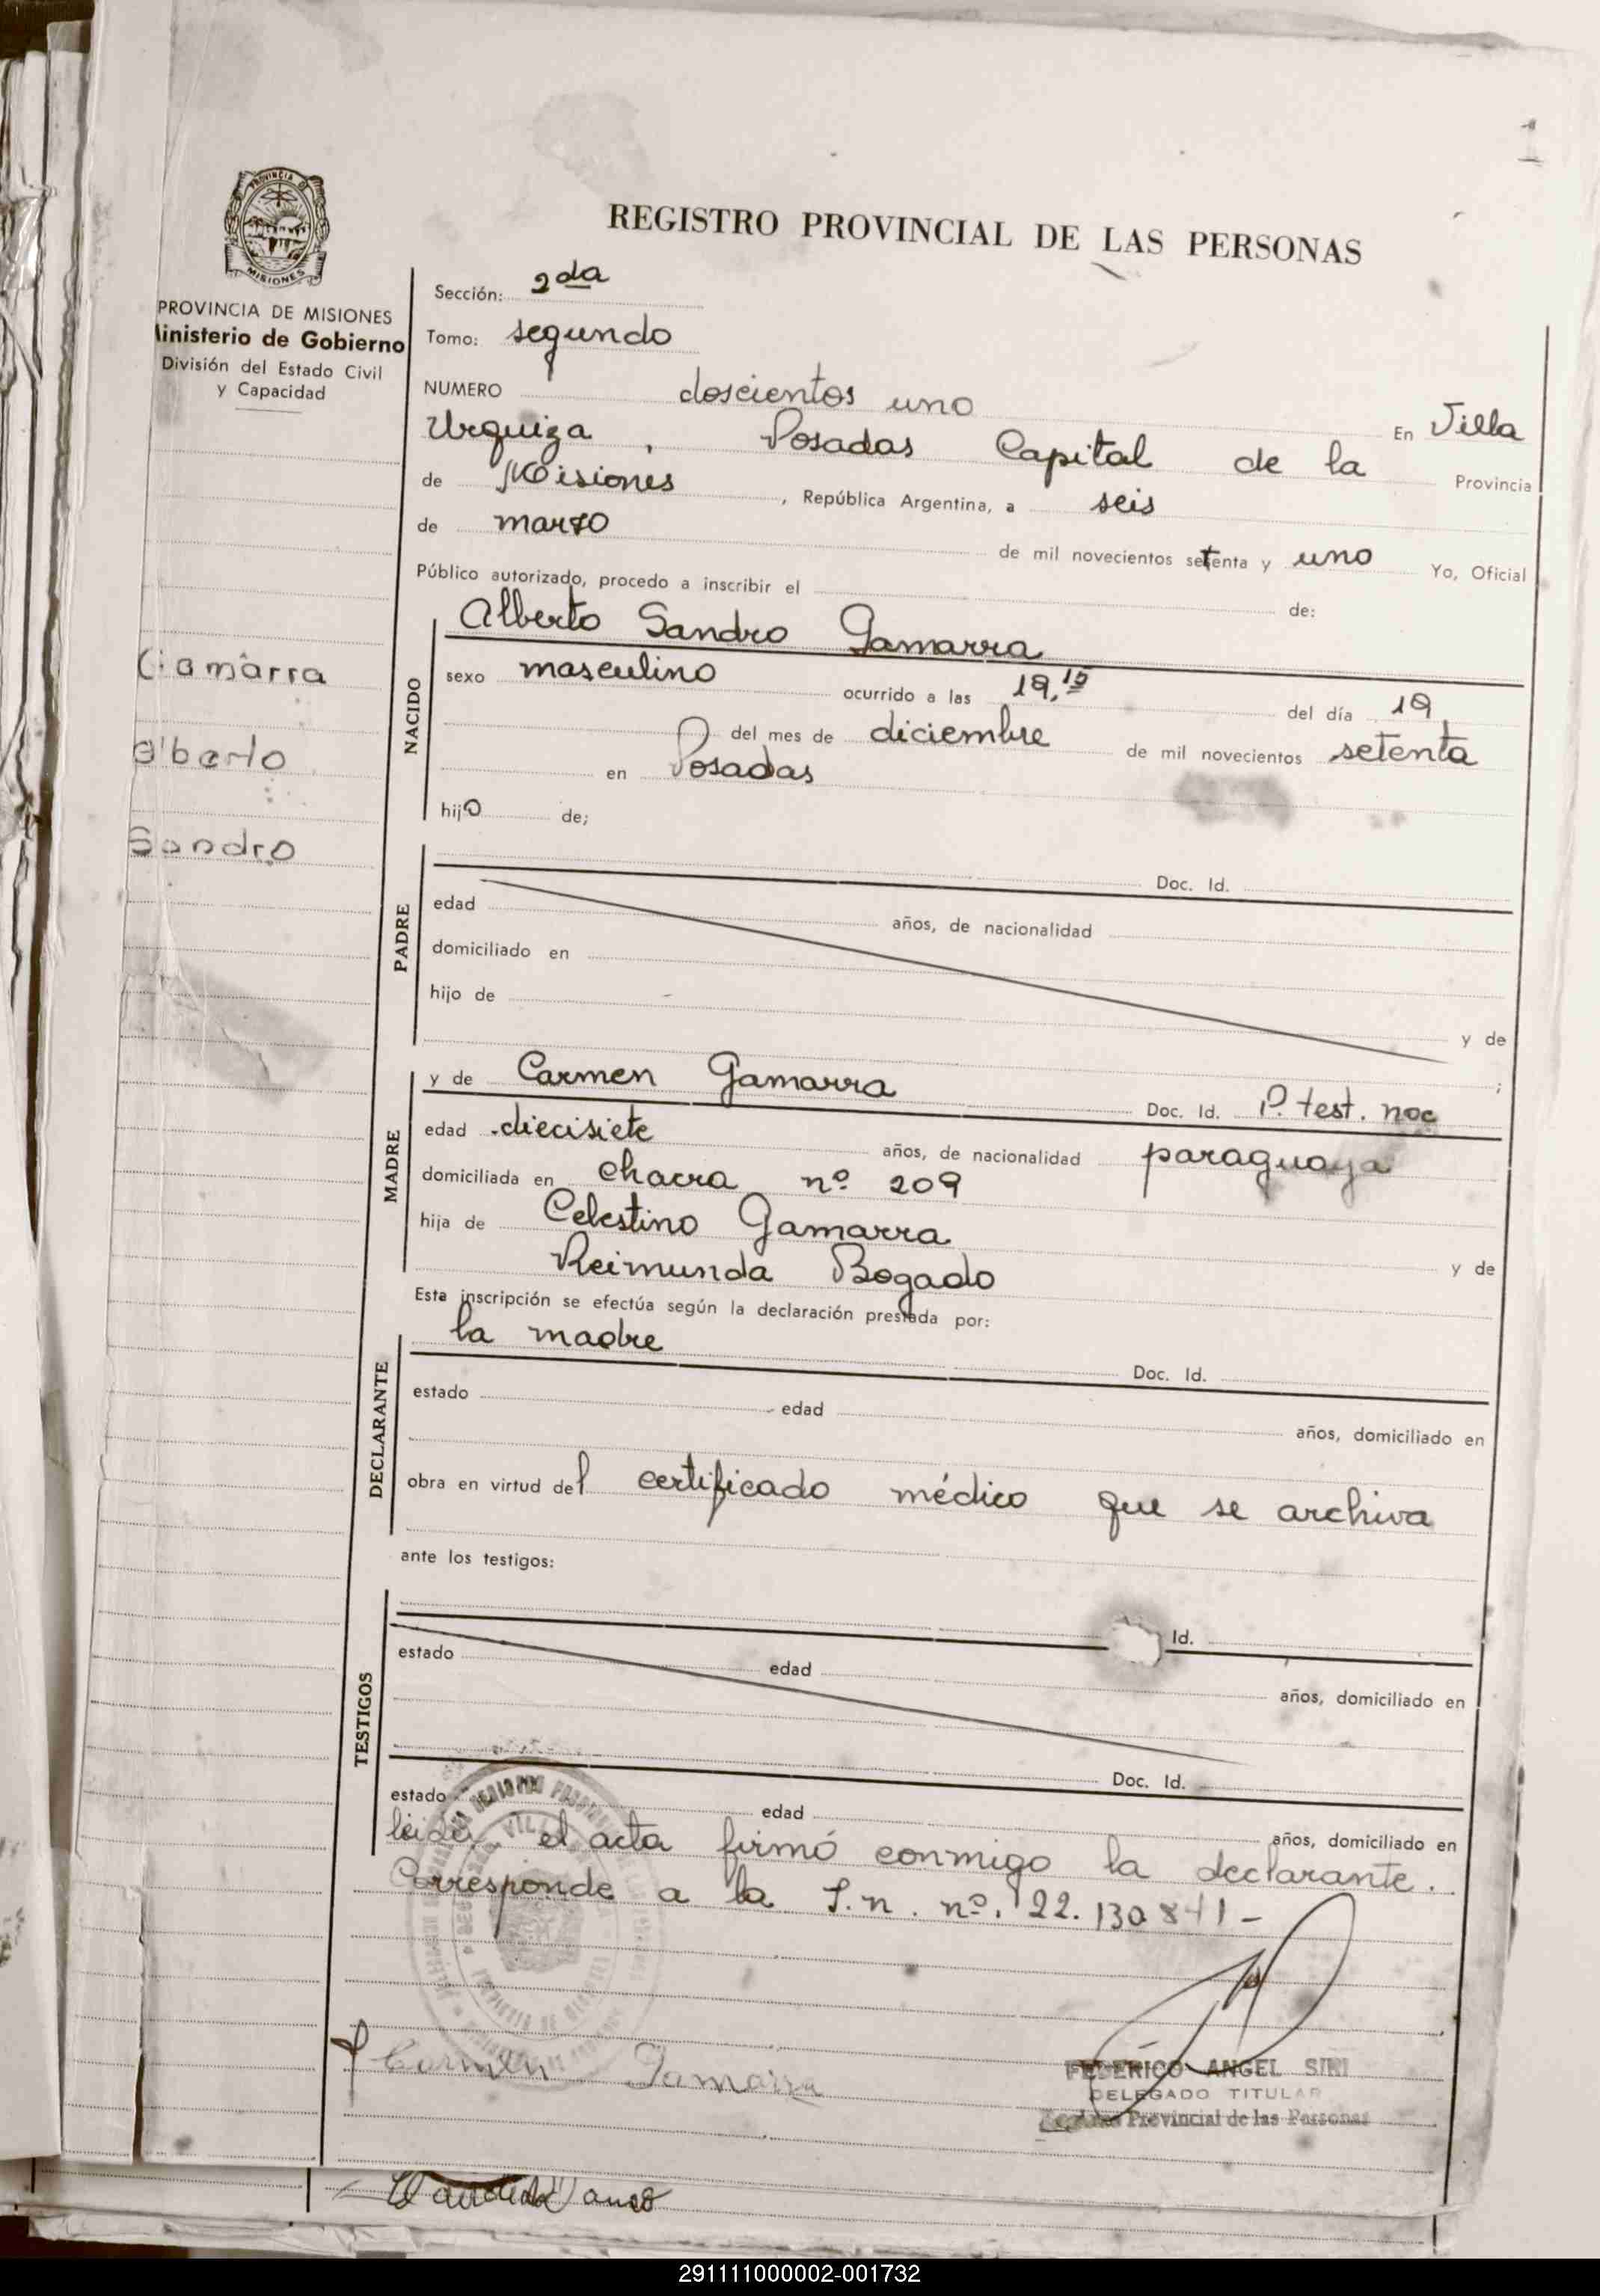 1
PROVINCIA DE MISIONES
REGISTRO PROVINCIAL DE LAS PERSONAS
PROVINCIA DE MISIONES
Ministerio de Gobierno
División del Estado Civil
y Capacidad
Sección: 2da
Tomo: segundo
NUMERO doscientos uno En Villa
Urquiza, Posadas Capital de la Provincia
de Misiones, República Argentina, a seis
de marzo de mil novecientos setenta y uno Yo, Oficial
Público autorizado, procedo a inscribir el de:
Gamarra
Alberto
Sandro
NACIDO
Alberto Sandro Gamarra
sexo masculino ocurrido a las 19,15 del día 19
del mes de diciembre de mil novecientos setenta
en Posadas
hijo de;
PADRE
Doc. Id.
edad años, de nacionalidad
domiciliado en
hijo de y de
;
MADRE
y de Carmen Gamarra Doc. Id. P. test. noc
edad diecisiete años, de nacionalidad paraguaya
domiciliada en chacra nº 209
hija de Celestino Gamarra y de
Reimunda Bogado
Esta inscripción se efectúa según la declaración prestada por:
DECLARANTE
la madre Doc. Id.
estado edad años, domiciliado en
obra en virtud del certificado médico que se archiva
ante los testigos:
TESTIGOS
Id.
estado edad años, domiciliado en
Doc. Id.
estado edad años, domiciliado en
leida el acta firmó conmigo la declarante.
Corresponde a la I.n. nº. 22.130841-
Carmen Gamarra
FEDERICO ANGEL SIRI
DELEGADO TITULAR
Provincial de las Personas
291111000002-001732